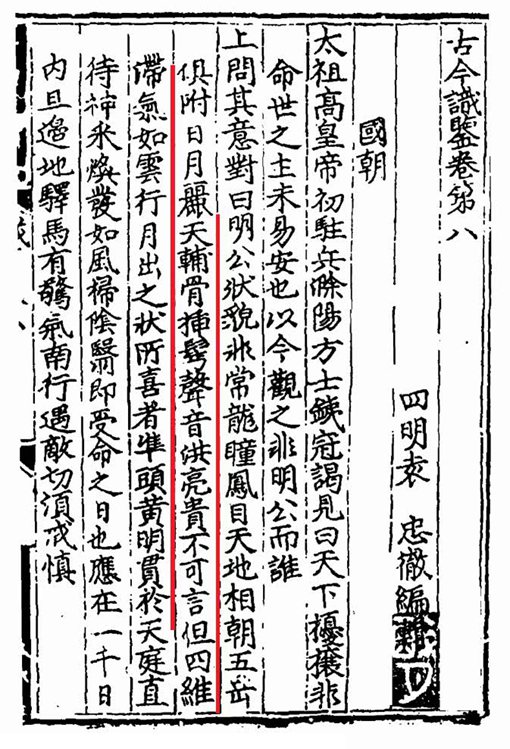 古今識鑒卷第八
四明袁 忠徹編輯
國朝
太祖高皇帝初駐兵滁陽方士鐵冠謁見曰天下擾攘非
命世之主未易安也以今觀之非明公而誰
上問其意對曰明公狀貌非常龍瞳鳳目天地相朝五岳
俱附日月麗天輔骨揷鬢聲音洪亮貴不可言但四維
滯氣如雲行月出之狀所喜者準頭黃明貫於天庭直
待神采煥發如風掃陰翳即受命之日也應在一千日
內且邉地驛馬有驚氣南行遇敵切須戒慎